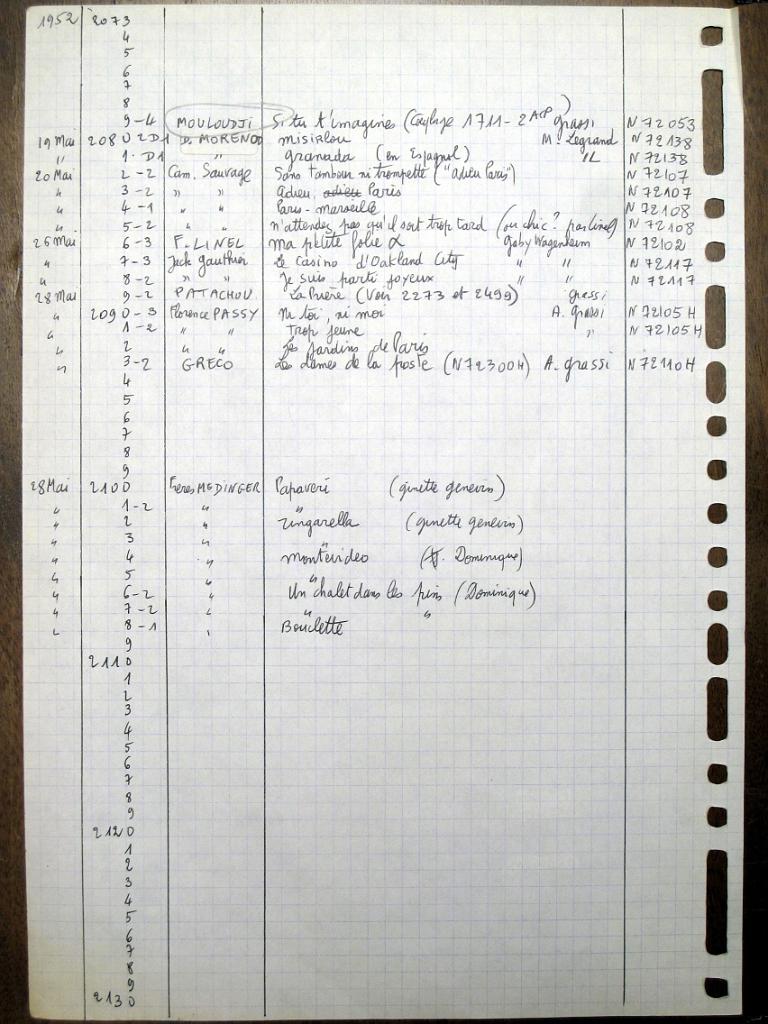 1952 2073
4
5
6
7
8
9-4 MOULOUDJI Si tu t'imagines ( 1711-2 ACP) grassi N 72053
19 Mai 2080 2D1 D. MORENO misirlou M. Legrand N 72138
" 1-D1 " granada (en Espagnol) " N 72138
20 Mai 2-2 Cam. Sauvage Sans tambour ni trompette ("adieu Paris") N 72107
" 3-2 " " Adieu, adieu Paris N 72107
" 4-1 " " Paris-marseille N 72108
" 5-2 " " n'attendez pas qu'il soit trop tard (ou chic? par linel) N 72108
26 Mai 6-3 F. LINEL ma petite folie Gaby Wagenheim N 72102
" 7-3 Jack gauthier Le Casino d'Oakland City " " N 72117
" 8-2 " " Je suis parti joyeux " " N 72117
28 Mai 9-2 PATACHOU La Prière (Voir 2273 et 2499) grassi
" 2090-3 Florence PASSY Ni toi, ni moi A. grassi N 72105 H
" 1-2 " " Trop jeune " N 72105 H
" 2 " " Les jardins de Paris
" 3-2 GRECO Les dames de la poste (N 72300H) A. grassi N 72110H
4
5
6
7
8
9
28 Mai 2100 Frères MEDINGER Papaveri (ginette genevois)
" 1-2 " "
" 2 " Zingarella (ginette genevois)
" 3 " "
" 4 " montevideo ( Dominique)
" 5 " "
" 6-2 " Un chalet dans les pins (Dominique)
" 7-2 " " "
" 8-1 " Bouclette
9
2110
1
2
3
4
5
6
7
8
9
2120
1
2
3
4
5
6
7
8
9
2130